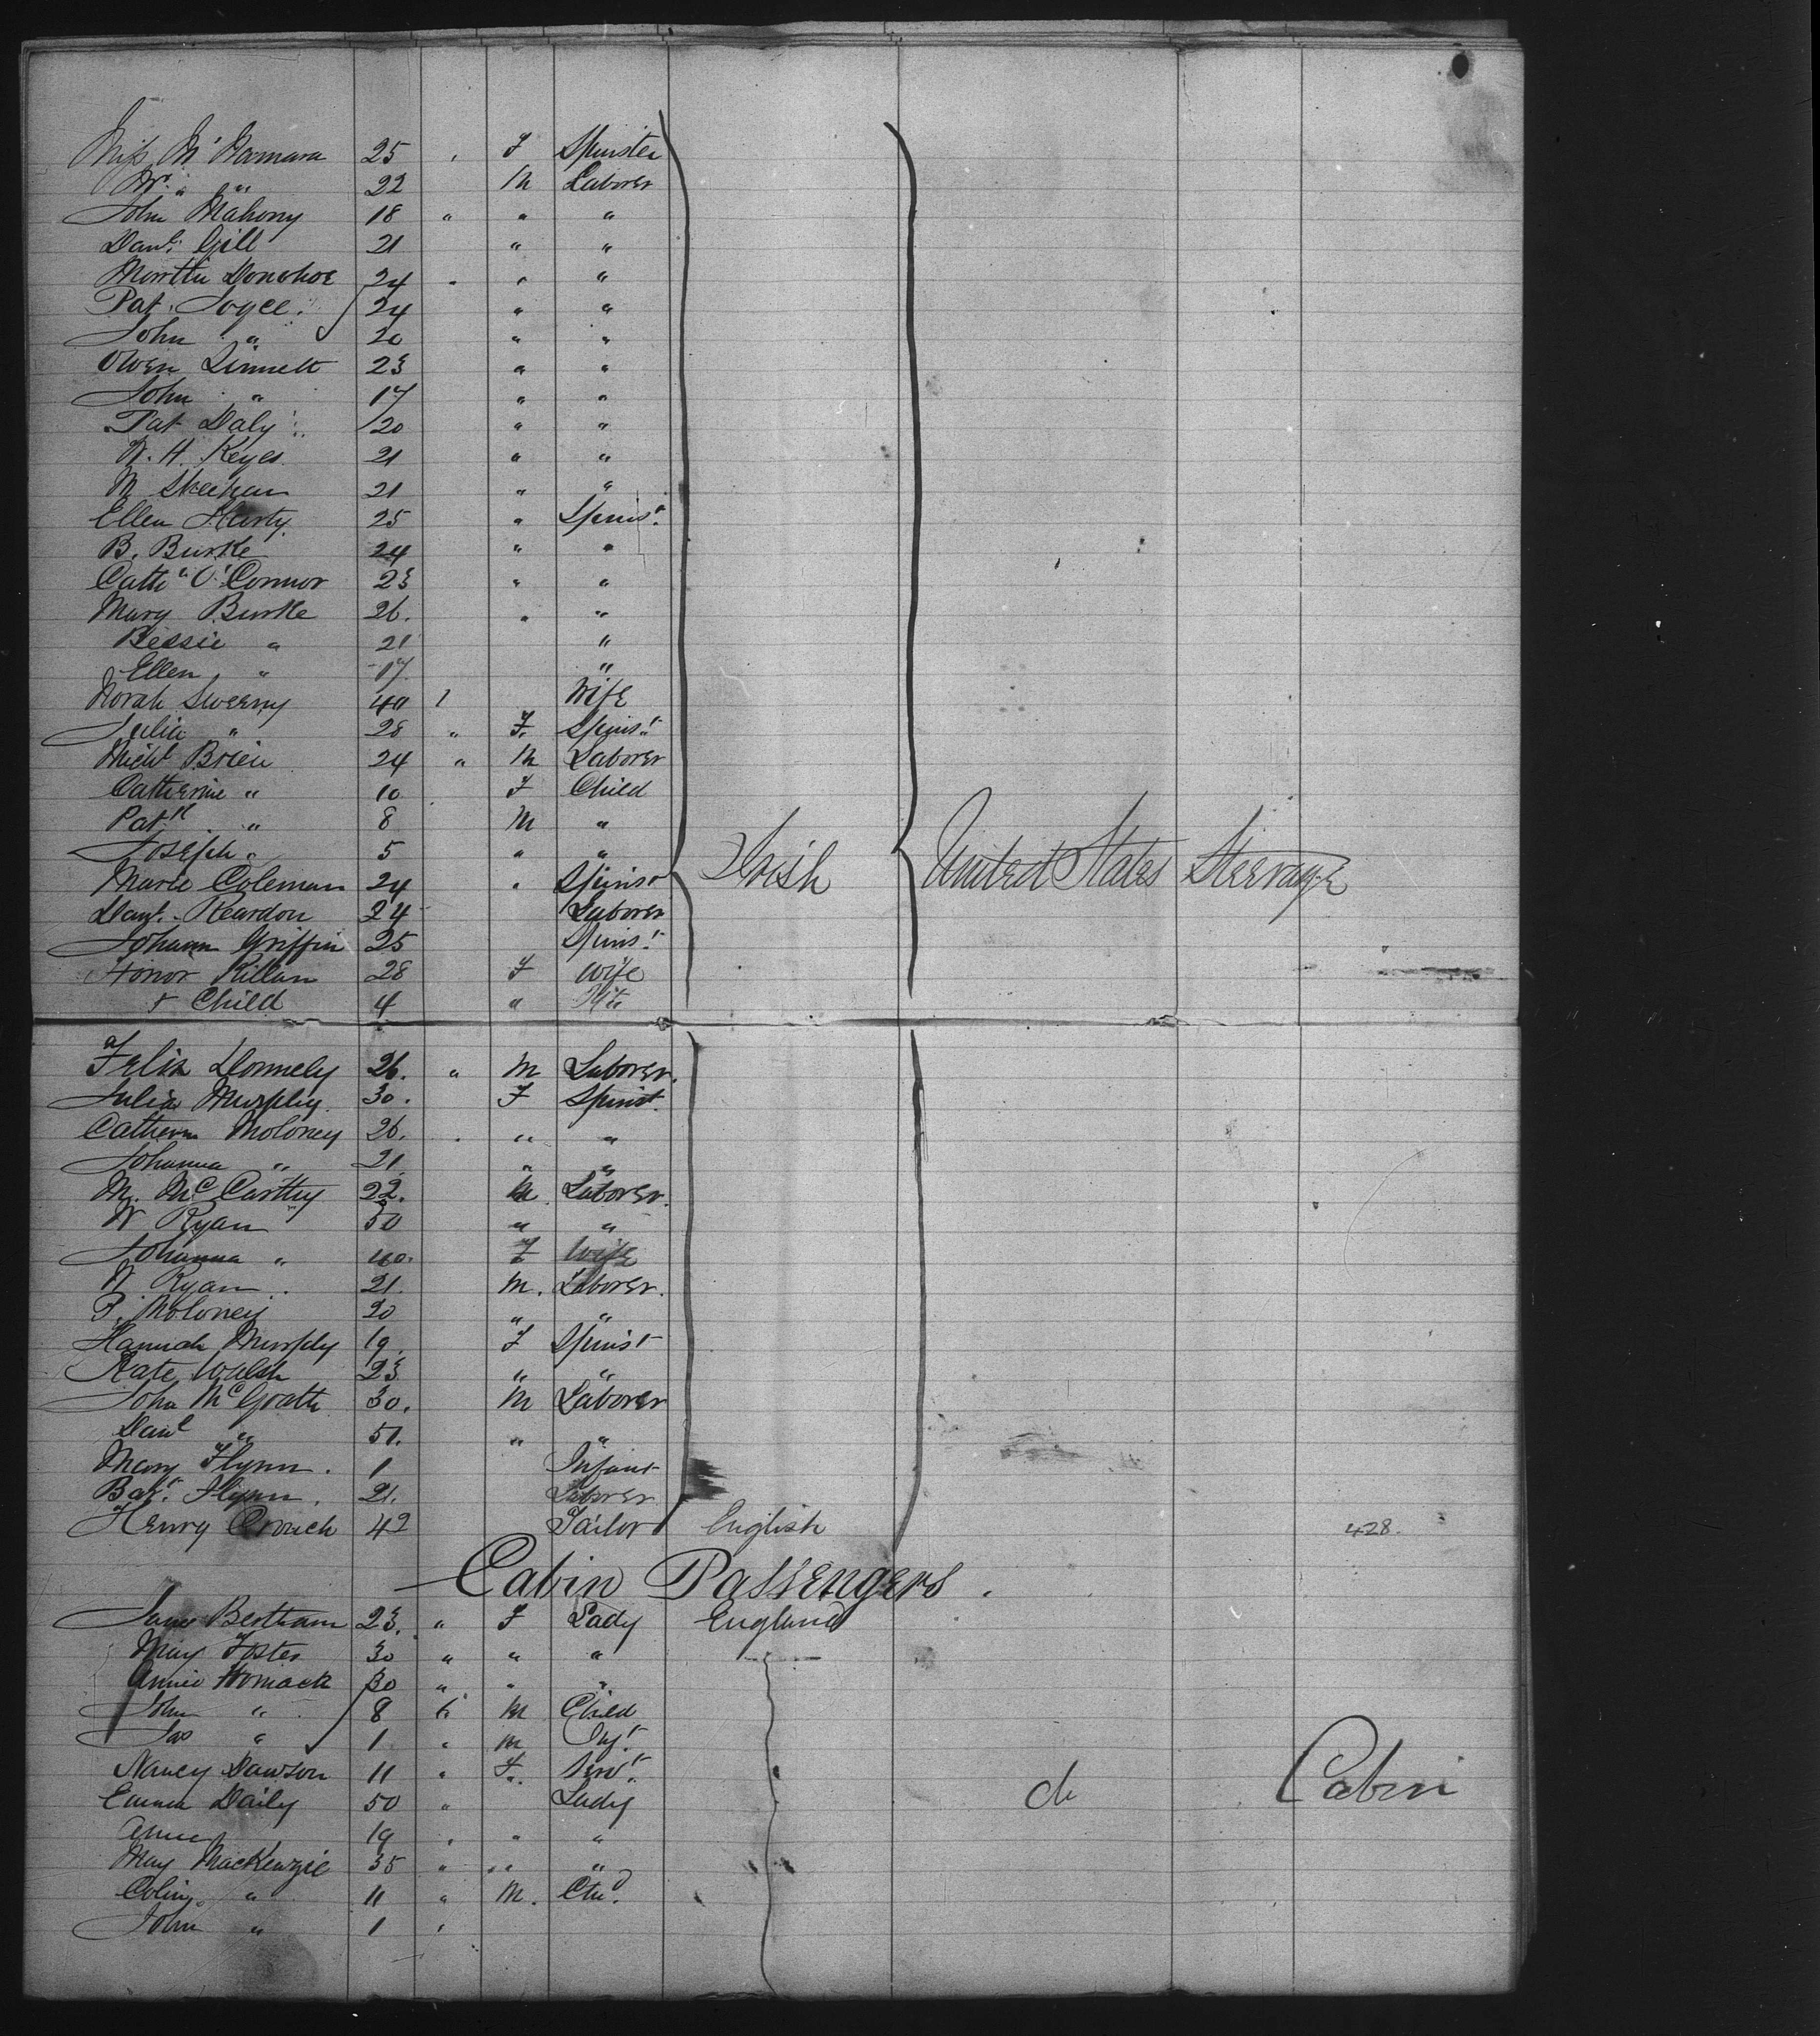 Miss McNamara 25 " F Spinster
Wm " " 22 M Laborer
John Mahony 18 " " "
Danl. Gill 21 " "
Donohoe 24 " " "
Pat. Joyce 24 " "
John " 20 " "
Owen Linnett 23 " "
John " 17 " "
Pat Daly 20 " "
W. H. Keyes 21 " "
M Sheehan 21 " "
Ellen 25 " Spinst.
B. Burke 24 " "
Cathe O'Connor 23 " "
Mary Burke 26. " "
Bessie " 21 "
Ellen " 17. "
Norah Sweeny 40 Wife
Julia " 28 " F. Spinst.
Michl Brien 24 " M Laborer
Catherine " 10 F Child
Patk " 8 M "
Joseph " 5 " "
Irish United States Steerage
Marie Coleman 24 " Spinst
Danl. Reardon 24 Laborer
Johann Griffin 25 Spinst.
Honor Killan 28 F Wife
+ Child 4 "
Felix Donnely 26. " M Laborer.
Julia Murphy 30. F Spinst.
Catherin Moloney 26. " " "
Johanna " 21 " "
M. McCarthy 22. M Laborer.
W Ryan 50 " "
Johanna " 40. F Wife
W. Ryan 21. M. Laborer.
P. Moloney 20 " "
Hannah Murphy 19. F Spinst
Kate Walsh 23 " "
John McGrath 30. M Laborer
Danl " 51. " "
Mary Flynn. 1 Infant
Bart. Flynn. 21. Laborer
Henry Crouch 42 Tailor English 428.
Cabin Passengers.
Bertham 23. " F Lady England
May Foster 30 " " "
Annie Womack 30 " " "
John " 8 " M Child
Jas " 1 " M Inft
Nancy Dawson 11 " F. Servt.
do Cabin
Emma Daily 50 " Lady
Annie 19 " " "
May MacKenzie 35 " " "
Colin " 11 " M. Chd.
John " 1 "